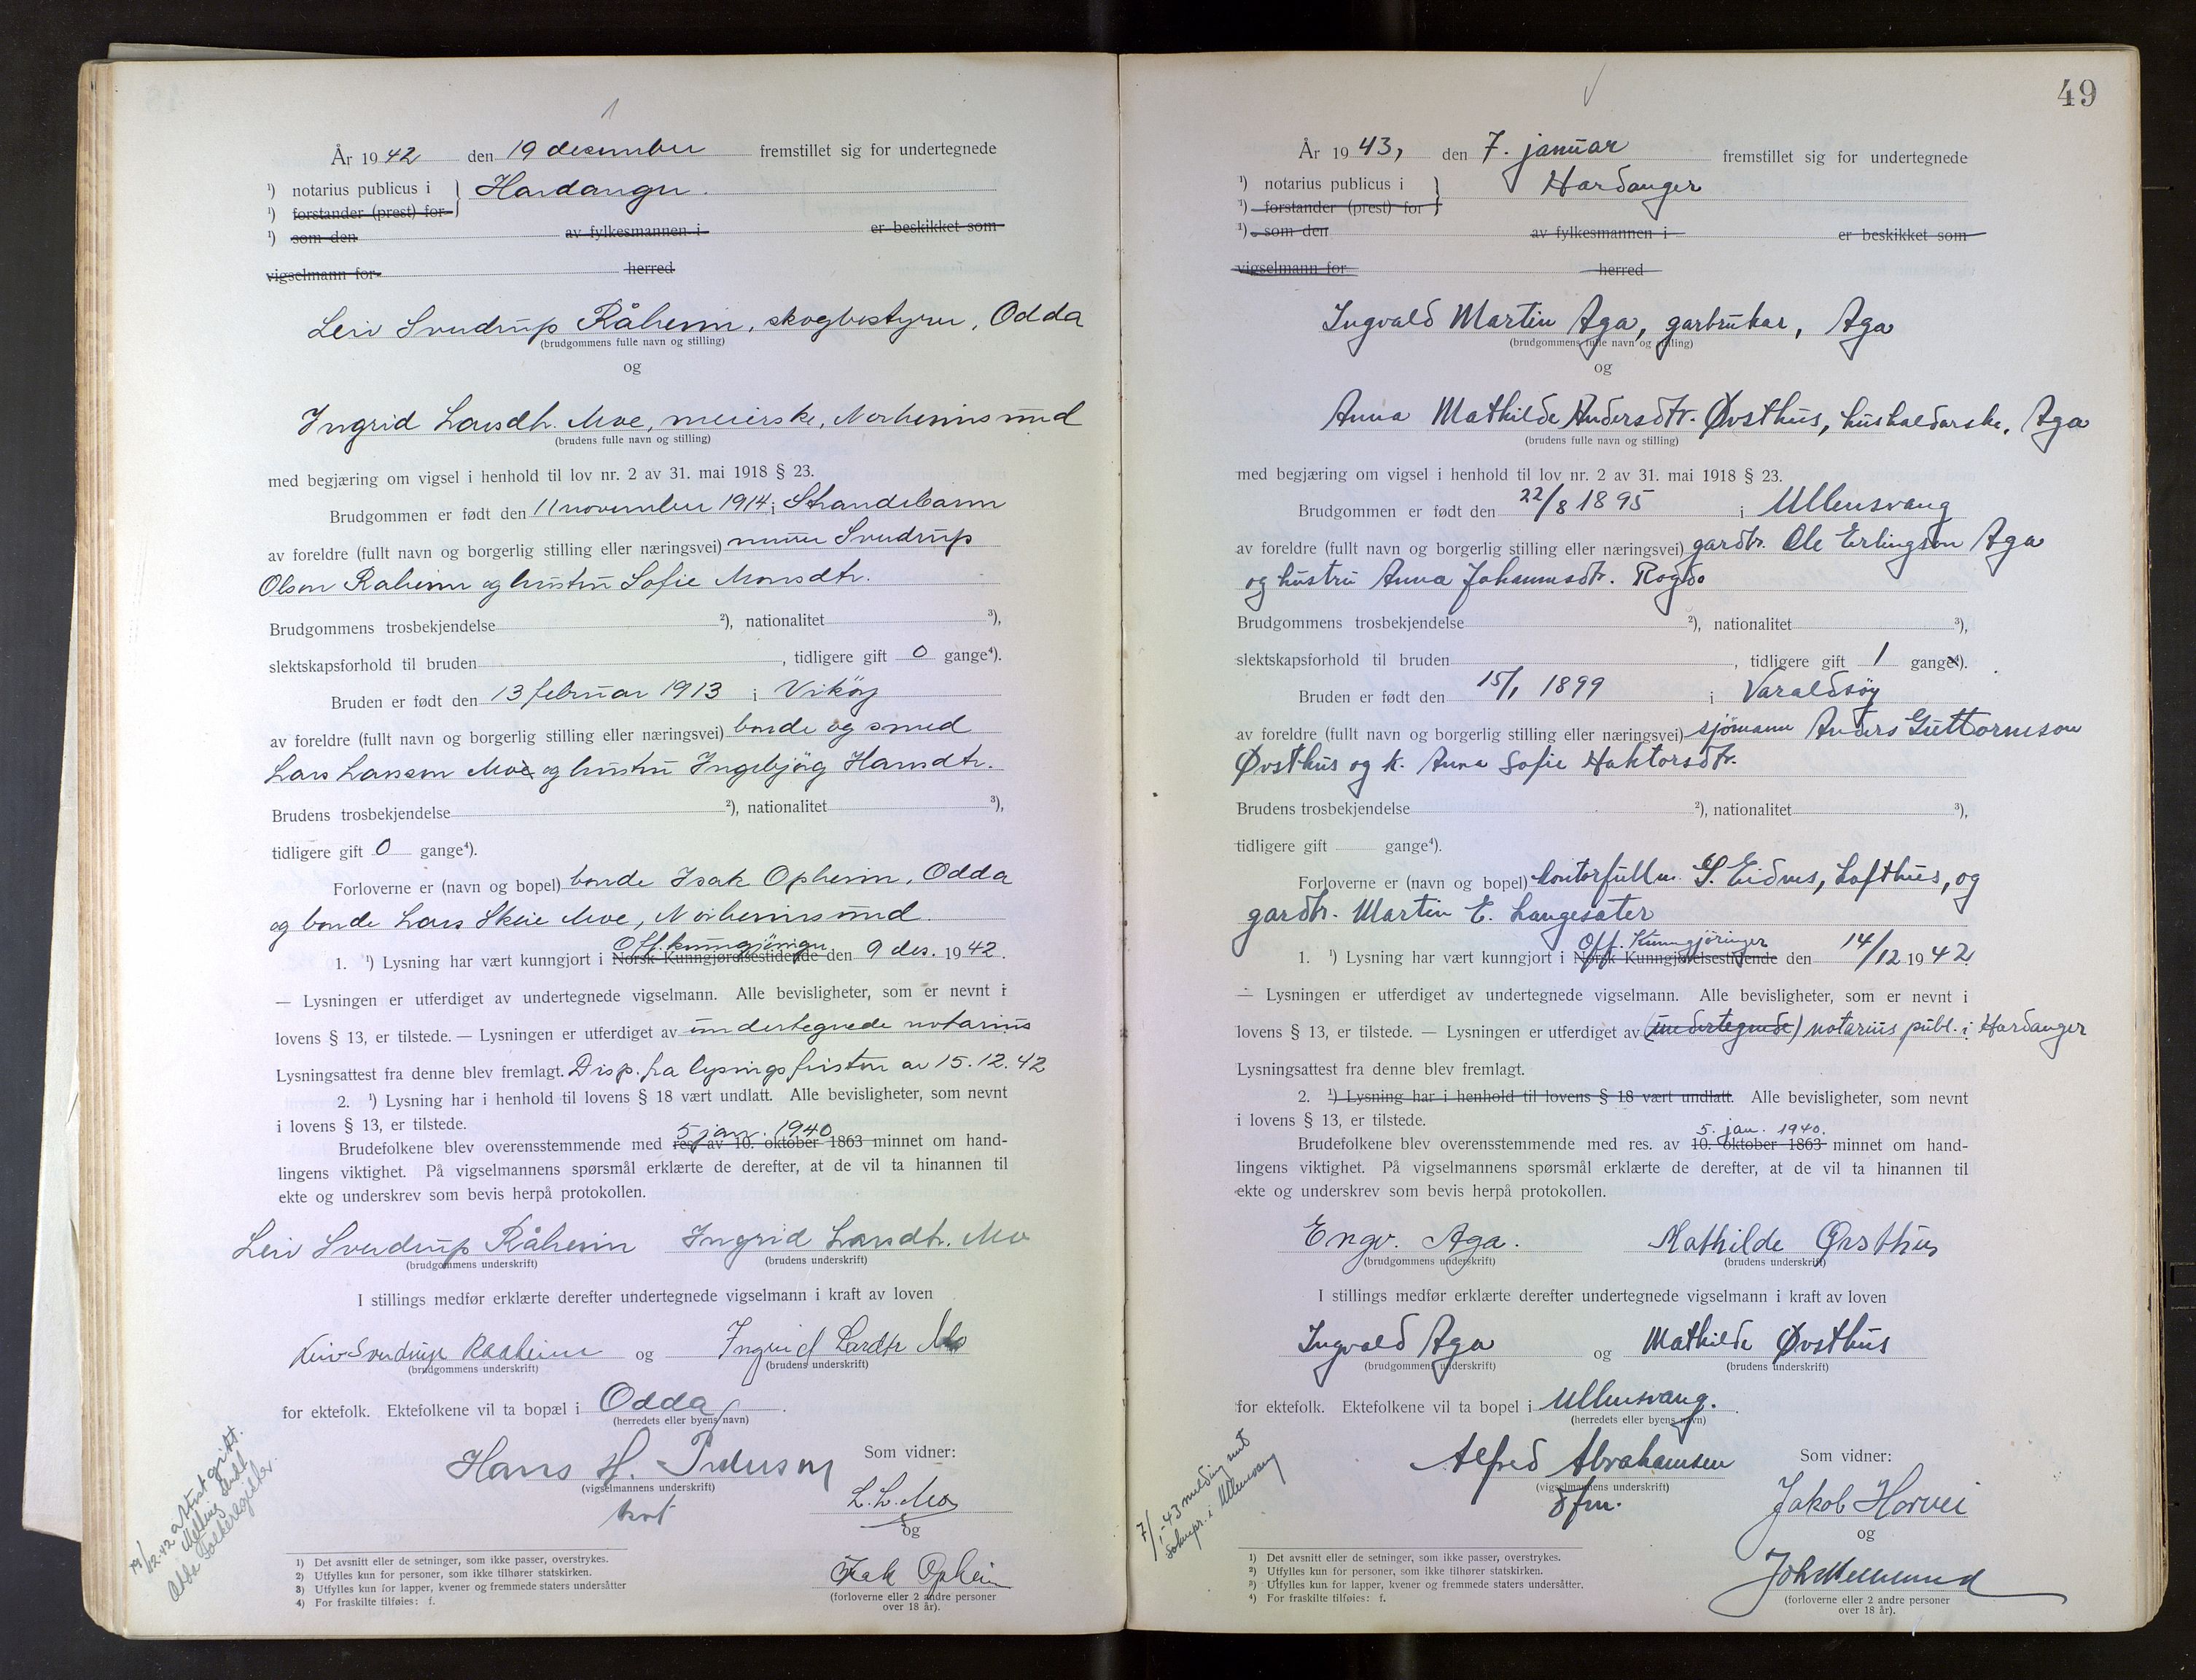 År 1942 den 19 desember fremstillet sig for undertegnede
¹) notarius publicus i } Hardanger.
¹) forstander (prest) for
¹) som den av fylkesmannen i er beskikket som
vigselmann for herred
Leiv Sverdrup Råheim, skogbestyrer, Odda
(brudgommens fulle navn og stilling)
og
Ingrid Larsdtr. Moe, meierske, Norheimsund
(brudens fulle navn og stilling)
med begjæring om vigsel i henhold til lov nr. 2 av 31. mai 1918 § 23.
Brudgommen er født den 11 november 1914 i Strandebarm
av foreldre (fullt navn og borgerlig stilling eller næringsvei) murer Sverdrup
Olson Raheim og hustru Sofie Monsdtr.
Brudgommens trosbekjendelse ²), nationalitet ³),
slektskapsforhold til bruden , tidligere gift 0 gange⁴).
Bruden er født den 13 februar 1913 i Vikøy
av foreldre (fullt navn og borgerlig stilling eller næringsvei) bonde og smed
Lars Larsson Moe og hustru Ingebjørg Hansdtr.
Brudens trosbekjendelse ²), nationalitet ³),
tidligere gift 0 gange⁴).
Forloverne er (navn og bopel) bonde Isak Opheim, Odda
og bonde Lars Skeie Moe, Norheimsund.
Off. kunngjöringer
1. ¹) Lysning har vært kunngjort i Norsk Kunngjørelsestidende den 9 des. 1942.
— Lysningen er utferdiget av undertegnede vigselmann. Alle bevisligheter, som er nevnt i
lovens § 13, er tilstede. — Lysningen er utferdiget av undertegnede notarius
Lysningsattest fra denne blev fremlagt. Disp. fra lysingsfristen av 15.12.42
2. ¹) Lysning har i henhold til lovens § 18 vært undlatt. Alle bevisligheter, som nevnt
i lovens § 13, er tilstede.
5 jan. 1940
Brudefolkene blev overensstemmende med res. av 10. oktober 1863 minnet om hand-
lingens viktighet. På vigselmannens spørsmål erklærte de derefter, at de vil ta hinannen til
ekte og underskrev som bevis herpå protokollen.
Leiv Sverdrup Råheim Ingrid Larsdtr. Mo
(brudgommens underskrift) (brudens underskrift)
I stillings medfør erklærte derefter undertegnede vigselmann i kraft av loven
Leiv Sverdrup Raaheim og Ingrid Larsdtr Mo
(brudgommens underskrift) (brudens underskrift)
for ektefolk. Ektefolkene vil ta bopæl i Odda.
(herredets eller byens navn)
Hans H. Pedersen Som vidner:
(vigselmannens underskrift)
L. L. Mo
og
Isak Opheim
(forloverne eller 2 andre personer
over 18 år).
19/12-42 attest gitt.
Melding sendt
Odda folkeregister.
1) Det avsnitt eller de setninger, som ikke passer, overstrykes.
2) Utfylles kun for personer, som ikke tilhører statskirken.
3) Utfylles kun for lapper, kvener og fremmede staters undersåtter
4) For fraskilte tilføies: f.
49
År 1943, den 7. januar fremstillet sig for undertegnede
¹) notarius publicus i } Hardanger
¹) forstander (prest) for
¹) som den av fylkesmannen i er beskikket som
vigselmann for herred
Ingvald Martin Aga, garbrukar, Aga
(brudgommens fulle navn og stilling)
og
Anna Mathilde Andersdtr. Øvsthus, hushaldarske, Aga
(brudens fulle navn og stilling)
med begjæring om vigsel i henhold til lov nr. 2 av 31. mai 1918 § 23.
Brudgommen er født den 22/8 1895 i Ullensvang
av foreldre (fullt navn og borgerlig stilling eller næringsvei) gardbr. Ole Erlingson Aga
og hustru Anna Johannesdtr. Rogdo
Brudgommens trosbekjendelse ²), nationalitet ³),
slektskapsforhold til bruden , tidligere gift 1 gange⁴).
Bruden er født den 15/1 1899 i Varaldsøy
av foreldre (fullt navn og borgerlig stilling eller næringsvei) sjømann Anders Guttormson
Øvsthus og k. Anna Sofie Haktorsdtr.
Brudens trosbekjendelse ²), nationalitet ³),
tidligere gift gange⁴).
Forloverne er (navn og bopel) kontorfullm. S. Eidnes, Lofthus, og
gardbr. Martin E. Langesæter
Off. Kunngjøringer
1. ¹) Lysning har vært kunngjort i Norsk Kunngjørelsestidende den 14/12 1942
— Lysningen er utferdiget av undertegnede vigselmann. Alle bevisligheter, som er nevnt i
lovens § 13, er tilstede. — Lysningen er utferdiget av (undertegnede) notarius publ. i Hardanger
Lysningsattest fra denne blev fremlagt.
2. ¹) Lysning har i henhold til lovens § 18 vært undlatt. Alle bevisligheter, som nevnt
i lovens § 13, er tilstede.
5. jan. 1940.
Brudefolkene blev overensstemmende med res. av 10. oktober 1863 minnet om hand-
lingens viktighet. På vigselmannens spørsmål erklærte de derefter, at de vil ta hinannen til
ekte og underskrev som bevis herpå protokollen.
Engv. Aga. Mathilde Øvsthus
(brudgommens underskrift) (brudens underskrift)
I stillings medfør erklærte derefter undertegnede vigselmann i kraft av loven
Ingvald Aga og Mathilde Øvsthus
(brudgommens underskrift) (brudens underskrift)
for ektefolk. Ektefolkene vil ta bopel i Ullensvang.
(herredets eller byens navn)
Alfred Abrahamsen Som vidner:
(vigselmannens underskrift)
dfm.
Jakob Horvei
og
(forloverne eller 2 andre personer
over 18 år).
7/1-43 melding sent
Soknepr. i Ullensvang
1) Det avsnitt eller de setninger, som ikke passer, overstrykes.
2) Utfylles kun for personer, som ikke tilhører statskirken.
3) Utfylles kun for lapper, kvener og fremmede staters undersåtter.
4) For fraskilte tilføies: f.